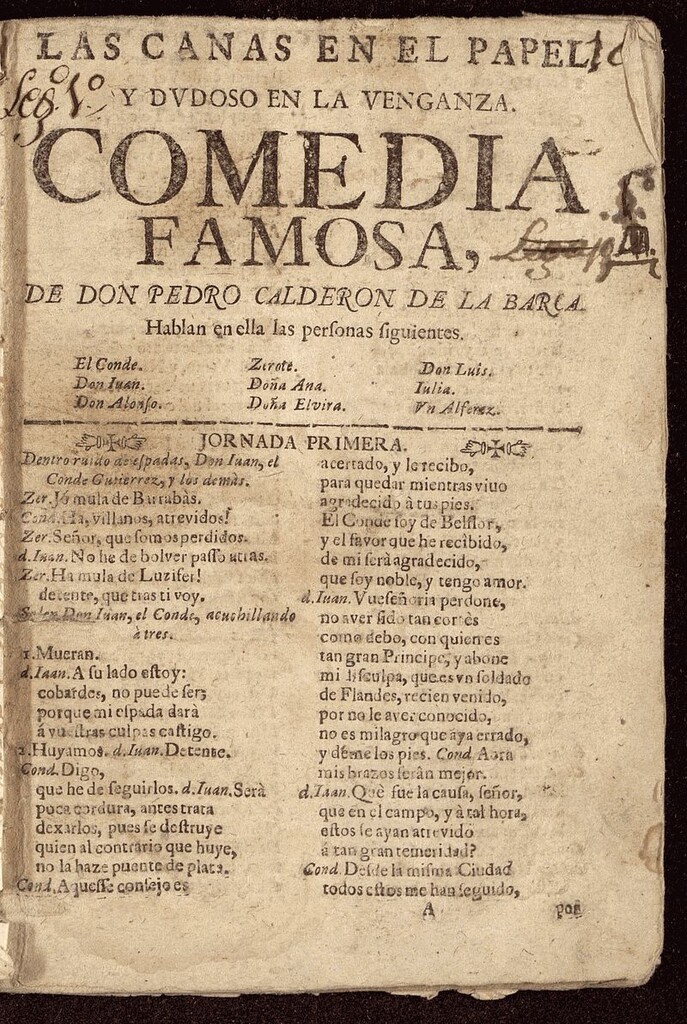 LAS CANAS EN EL PAPEL,
Y DVDOSO EN LA VENGANZA.
COMEDIA
FAMOSA,
DE DON PEDRO CALDERON DE LA BARCA.
Hablan en ella las perſonas ſiguientes.
El Conde.
Don Iuan.
Don Alonſo.
Zerote.
Doña Ana.
Doña Elvira.
Don Luis.
Iulia.
Vn Alferez.
JORNADA PRIMERA.
Dentro ruido de eſpadas, Don Iuan, el
Conde Gutierrez, y los demàs.
Zer. Yo mula de Barrabàs.
Cond. Ha, villanos, atrevidos!
Zer. Señor, que ſomos perdidos.
d. Iuan. No he de bolver paſſo atras.
Zer. Ha mula de Luzifer!
detente, que tras ti voy.
Salen Don Iuan, el Conde, acuchillando
à tres.
1. Mueran.
d. Iuan. A ſu lado eſtoy:
cobardes, no puede ſer;
porque mi eſpada darà
á vueſtras culpas caſtigo.
2. Huyamos. d. Iuan. Detente.
Cond. Digo,
que he de ſeguirlos. d. Iuan. Serà
poca cordura, antes trata
dexarlos, pues ſe deſtruye
quien al contrario que huye,
no la haze puente de plata.
Cond. Aqueſſe conſejo es
acertado, y le recibo,
para quedar mientras vivo
agradecido à tus pies.
El Conde ſoy de Belflor,
y el favor que he recibido,
de mi ſerà agradecido,
que ſoy noble, y tengo amor.
d. Iuan. Vueſeñoria perdone,
no aver ſido tan cortès
como debo, con quien es
tan gran Principe, y abone
mi diſculpa, que es vn ſoldado
de Flandes, recien venido,
por no le aver conocido,
no es milagro que aya errado,
y dème los pies. Cond. Aora
mis brazos ſeràn mejor.
d. Iuan. Què fue la cauſa, ſeñor,
que en el campo, y à tal hora,
eſtos ſe ayan atrevido
à tan gran temeridad?
Cond. Deſde la miſma Ciudad
todos eſtos me han ſeguido,
A
por